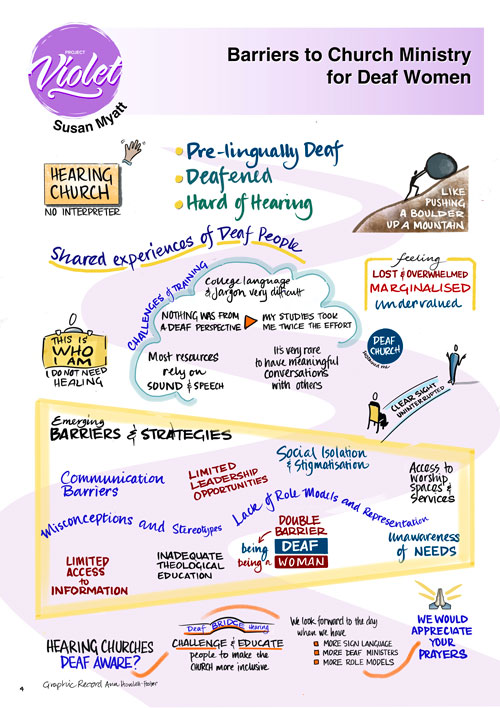 PROJECT
Violet
Susan Myatt
Barriers to Church Ministry
for Deaf Women
HEARING
CHURCH
NO INTERPRETER
Pre-lingually Deaf
Deafened
Hard of Hearing
LIKE
PUSHING
A BOULDER
UP A MOUNTAIN
Shared experiences of Deaf People
CHALLENGES of TRAINING
College language
& Jargon very difficult
NOTHING WAS FROM
A DEAF PERSPECTIVE
MY STUDIES TOOK
ME TWICE THE EFFORT
Most resources
rely on
SOUND & SPEECH
It's very rare
to have meaningful
conversations
with others
feeling
LOST & OVERWHELMED
MARGINALISED
undervalued
THIS IS
WHO
I AM
I DO NOT NEED
HEALING
DEAF
CHURCH
welcomed me
CLEAR SIGHT
UNINTERRUPTED
Emerging
BARRIERS & STRATEGIES
Communication
Barriers
LIMITED
LEADERSHIP
OPPORTUNITIES
Social Isolation
& Stigmatisation
Access to
worship
spaces &
services
Misconceptions and Stereotypes
Lack of Role Models and Representation
LIMITED
ACCESS
to
INFORMATION
INADEQUATE
THEOLOGICAL
EDUCATION
DOUBLE
BARRIER
being DEAF
being a WOMAN
Unawareness
of NEEDS
HEARING CHURCHES
DEAF AWARE?
Deaf BRIDGE Hearing
CHALLENGE & EDUCATE
people to make the
CHURCH more inclusive
We look forward to the day
when we have
MORE SIGN LANGUAGE
MORE DEAF MINISTERS
MORE ROLE MODELS
WE WOULD
APPRECIATE
YOUR
PRAYERS
4
Graphic Record Ann Howlett-Foster